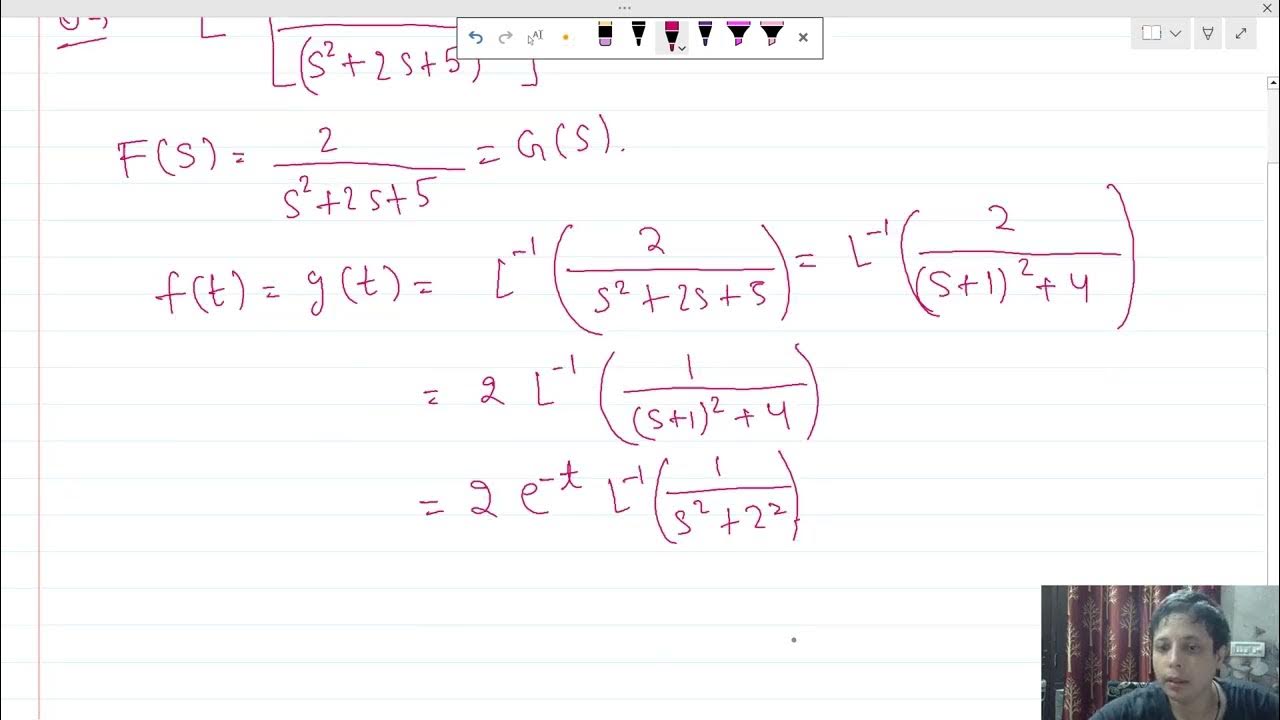 L⁻¹
(s² + 2s + 5)
F(s) = 2/(s² + 2s + 5) = G(s).
f(t) = g(t) = L⁻¹(2/(s² + 2s + 5)) = L⁻¹(2/((s+1)² + 4))
= 2 L⁻¹(1/((s+1)² + 4))
= 2 e^(-t) L⁻¹(1/(s² + 2²))